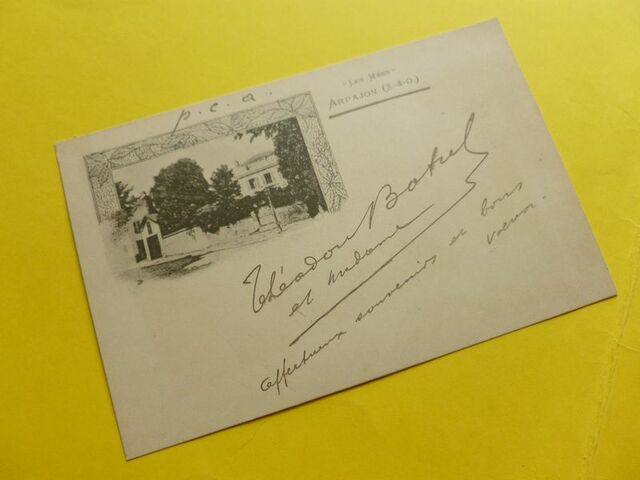 p. c. a.
"Les Nées"
ARPAJON (S.-&-O.)
Théodore Botrel
et madame
affectueux souvenirs et bons
voeux.